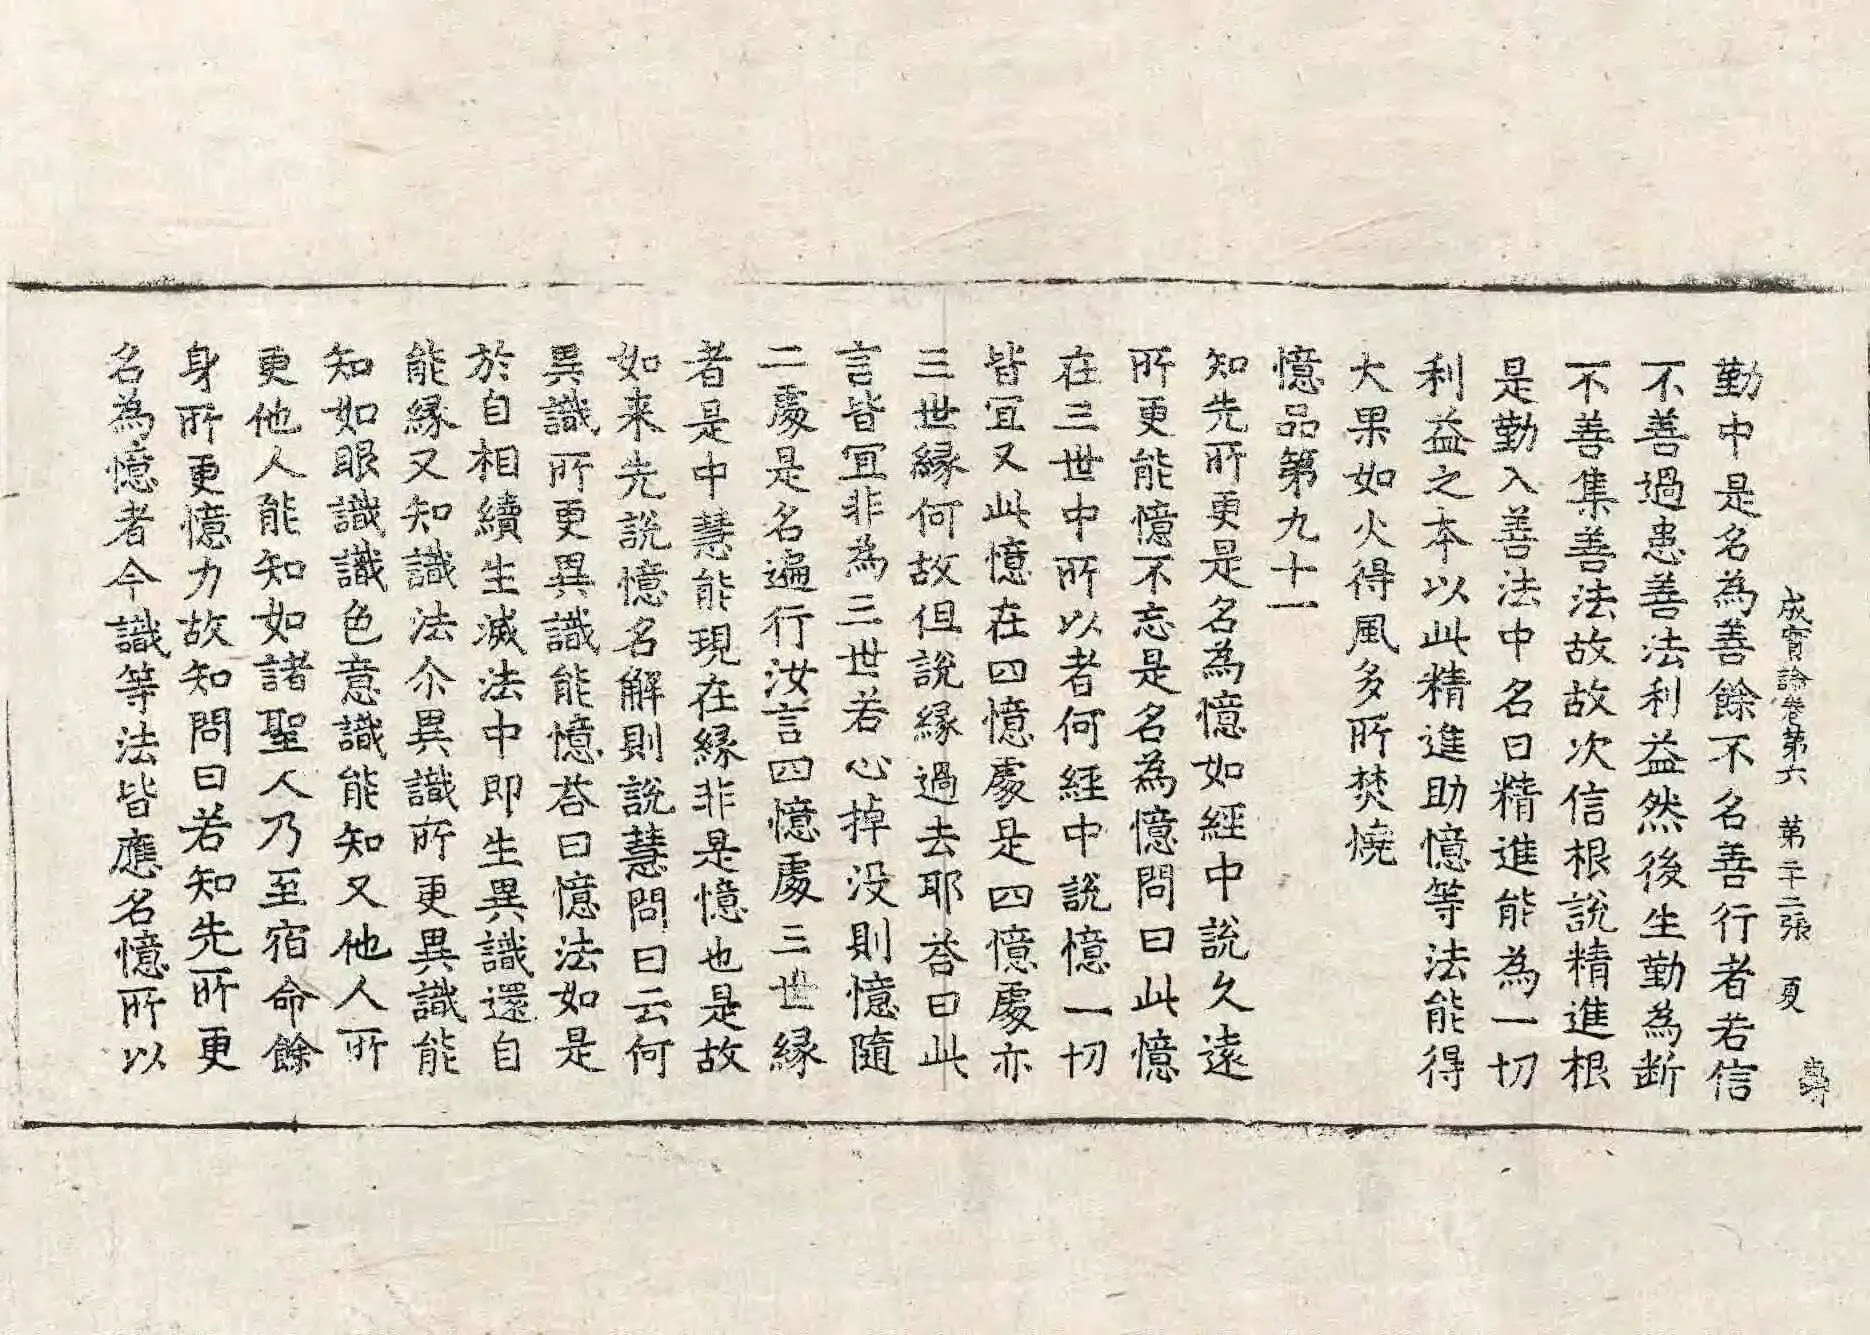 成實論卷第六 第二十二張 夏
勤中是名為善餘不名善行者若信
不善過患善法利益然後生勤為断
不善集善法故故次信根說精進根
是勤入善法中名曰精進能為一切
利益之本以此精進助憶等法能得
大果如火得風多所焚燒
憶品第九十一
知先所更是名為憶如經中說久遠
所更能憶不忘是名為憶問曰此憶
在三世中所以者何經中說憶一切
皆冝又此憶在四憶處是四憶處亦
三世緣何故但說緣過去耶荅曰此
言皆冝非為三世若心掉没則憶隨
二處是名遍行汝言四憶處三世緣
者是中慧能現在緣非是憶也是故
如来先說憶名解則說慧問曰云何
異識所更異識能憶荅曰憶法如是
於自相續生滅法中即生異識還自
能緣又知識法尒異識所更異識能
知如眼識識色意識能知又他人所
更他人能知如諸聖人乃至宿命餘
身所更憶力故知問曰若知先所更
名為憶者今識等法皆應名憶所以